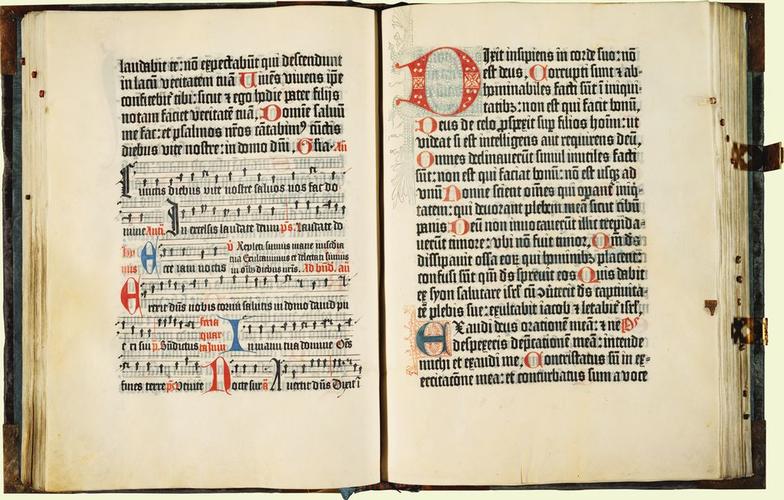 laudabit te: nō expectabūt qui descendunt
in lacū veritatem tuā Uiuēs viuens ip̄e
confitebit̄ tibi: sicut ⁊ ego hodie pater filijs
notam faciet veritatem tuā, Domine saluū
me fac: et psalmos nr̄os cātabim⁹ cūctis
diebus vite nostre: in domo dn̄i, Gl̄ia · an̄
Cunctis diebus vite nostre saluos nos fac do
mine Ant̄i. In excelsis laudate deum p̄s. Laudate do
hym v̄ Repleti sumus mane misedia
nus Ecce iam noctis tua Exultauimus et delectati sumus
in oīb; diebus nr̄is. Ad bn̄d. an̄
Erexit dn̄s nobis cornu salutis in domo dauid pu
eri sui p̄. Bn̄dictus feria quarta In matutina domine Oēs
fines terre p̄s. Venite Nocte sur ā Auertit dn̄s Dixit i
Dixit insipiens in corde suo: nō
est deus, Corrupti sunt ⁊ ab-
hominabiles facti sūt ī iniqui-
tatib;: non est qui facit bonū,
Deus de celo p̄spexit sup̄ filios hoim̄: ut
videat si est intelligens aut requirens deū,
Omnes declinauerūt simul inutiles facti
sūt: non est qui faciat bonū: nō est usq; ad
vnū Nonne scient oēs qui opant̄ iniq̄-
tatem: qui deuorant plebem meā sicut cibū
panis Deū non inuocauerūt illic trepida-
uerūt timore: vbi nō fuit timor, Qm̄ d̄s
dissipauit ossa eor̄ qui hoīnib; placent:
confusi sunt qm̄ d̄s spreuit eos Quis dabit
ex syon salutare isrl̄ cū ↄ̄uerterit d̄s captiuita-
tē plebis sue: exultabit iacob ⁊ letabit̄ isrl̄,
Exaudi deus orationē meā: ⁊ ne p̄s
despexeris dep̄cationē meā: intende
michi et exaudi me, Contristatus sū in ex-
ercitacōne mea: et conturbatus sum a voce